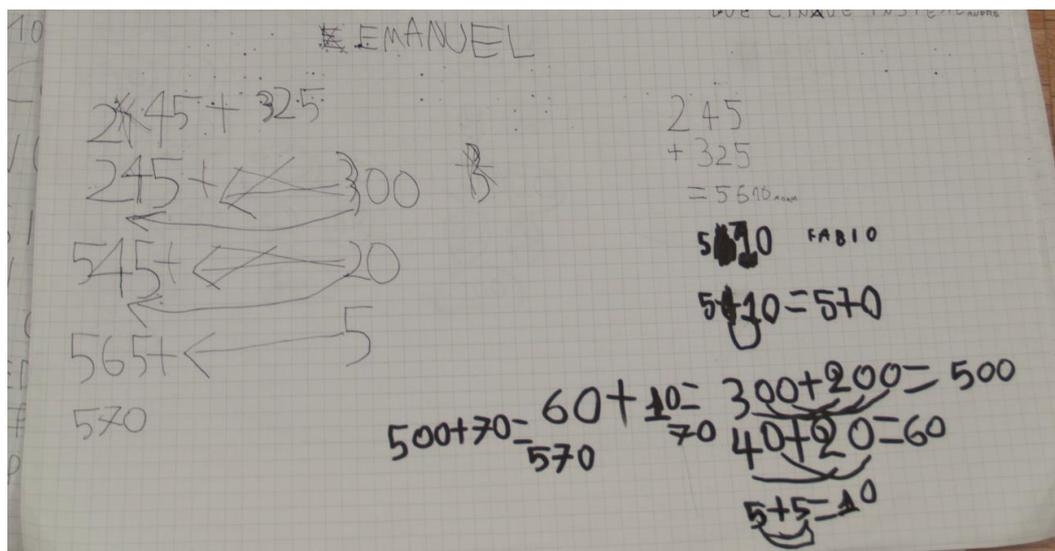 EMANUEL
245+ 325
245+ 300
545+ 20
565+ 5
570
245
+ 325
= 5610
5610 FABIO
5610=570
300+200=500
40+20=60
5+5=10
60+10=
70
500+70=
570